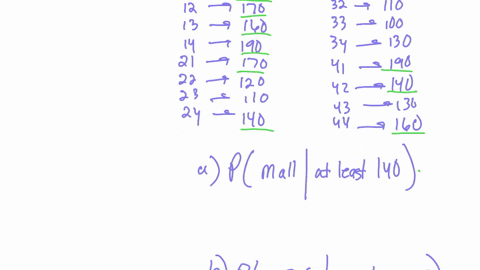 12 → 170
13 → 160
14 → 190
21 → 170
22 → 120
23 ← 110
24 → 140
32 → 110
33 → 100
34 → 130
41 → 190
42 → 140
43 → 130
44 → 160
a) P( mall | at least 140 )
b)